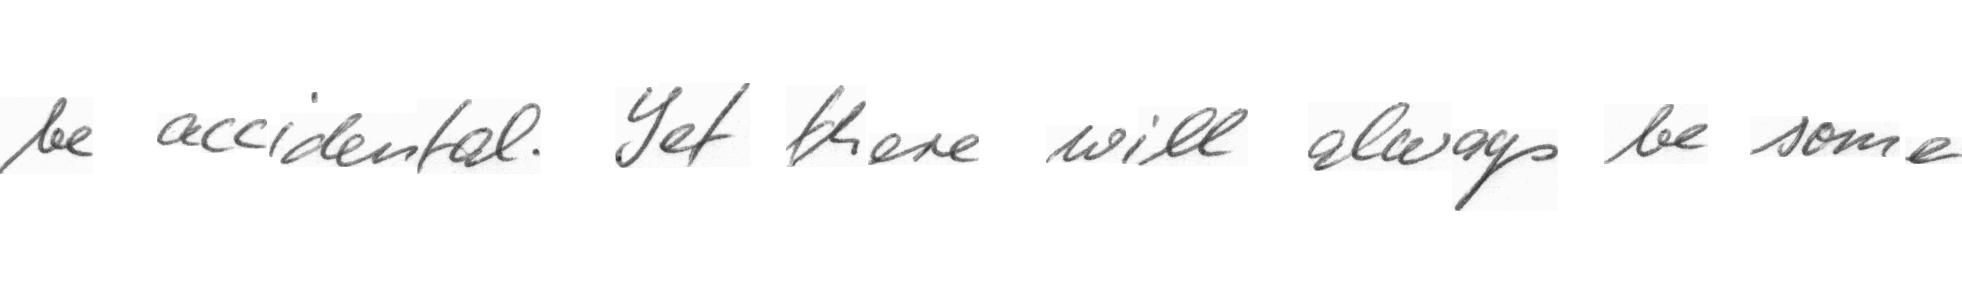 be accidental. Yet there will always be some